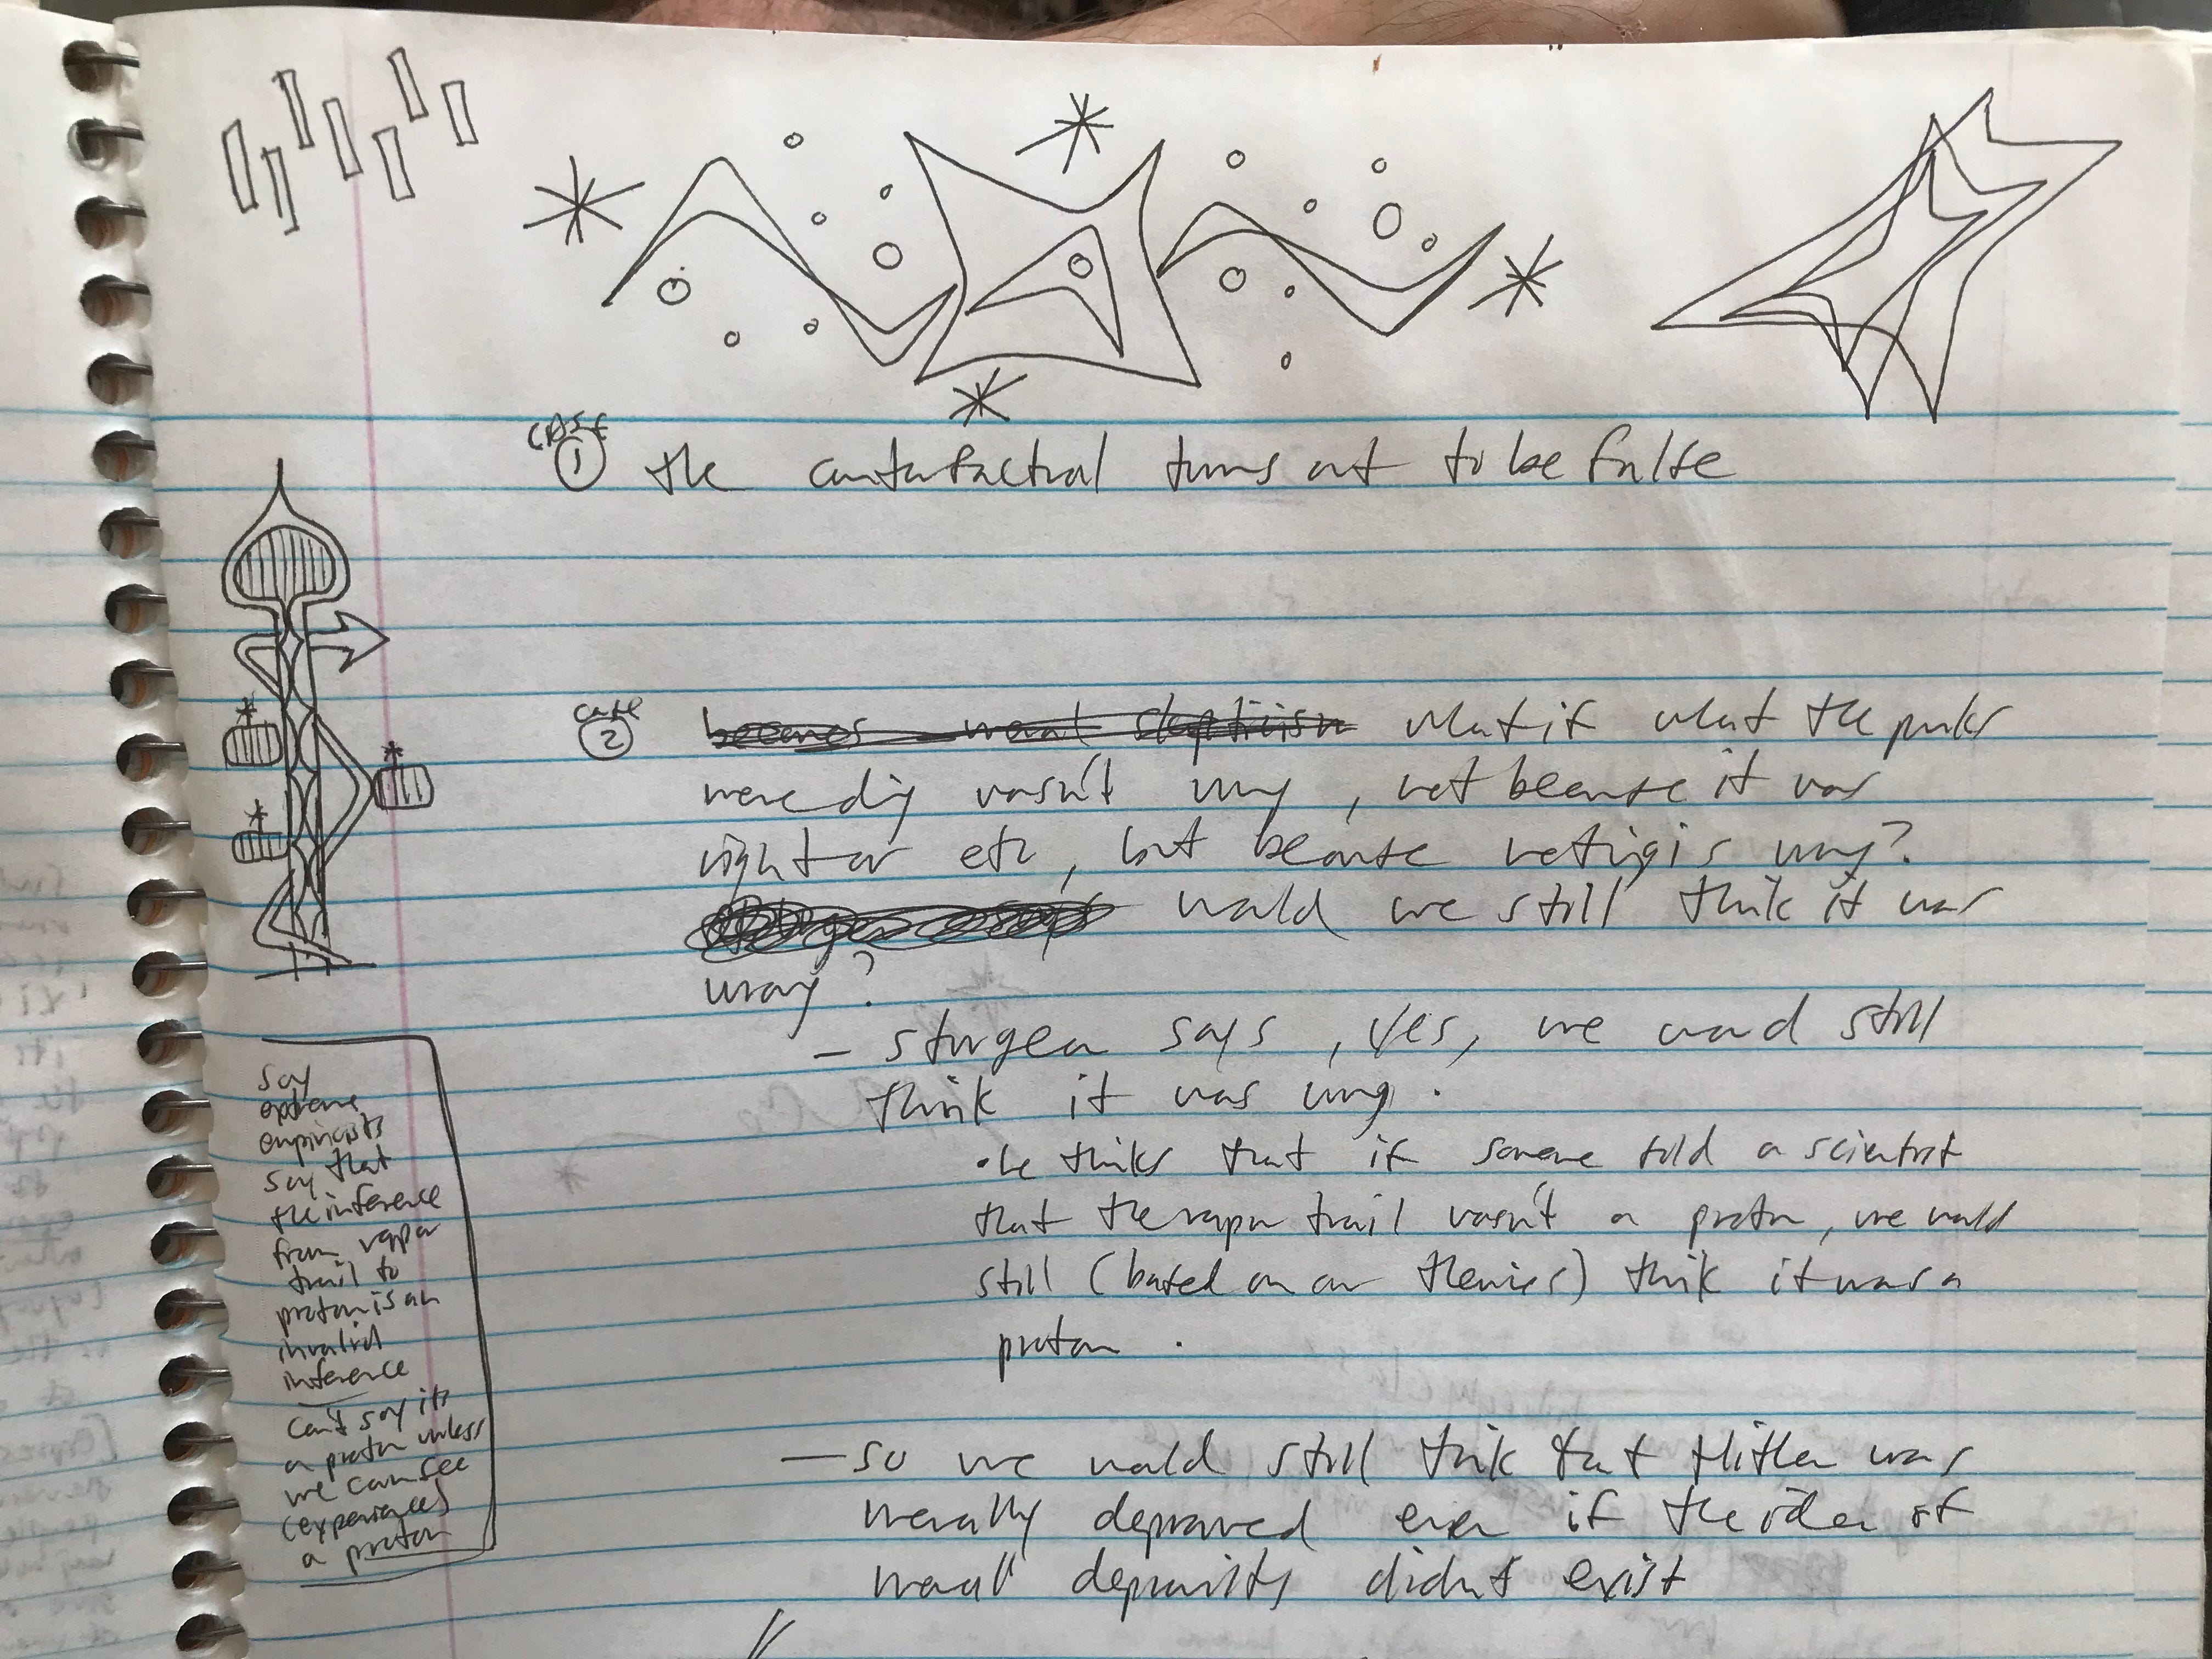 CASE
① the counterfactual turns out to be false
case
② becomes moral skepticism what if what the punks
were doing wasn't wrong, not because it was
right or etc, but because nothing is wrong?
would we still think it was
wrong?
– sturgeon says, yes, we would still
think it was wrong.
• he thinks that if someone told a scientist
that the vapor trail wasn't a proton, we would
still (based on our theories) think it was a
proton.
— so we would still think that Hitler was
morally depraved even if the idea of
moral depravity didn't exist
say
extreme
empiricists
say that
the inference
from vapor
trail to
proton is an
invalid
inference
can't say it's
a proton unless
we can see
(experience)
a proton